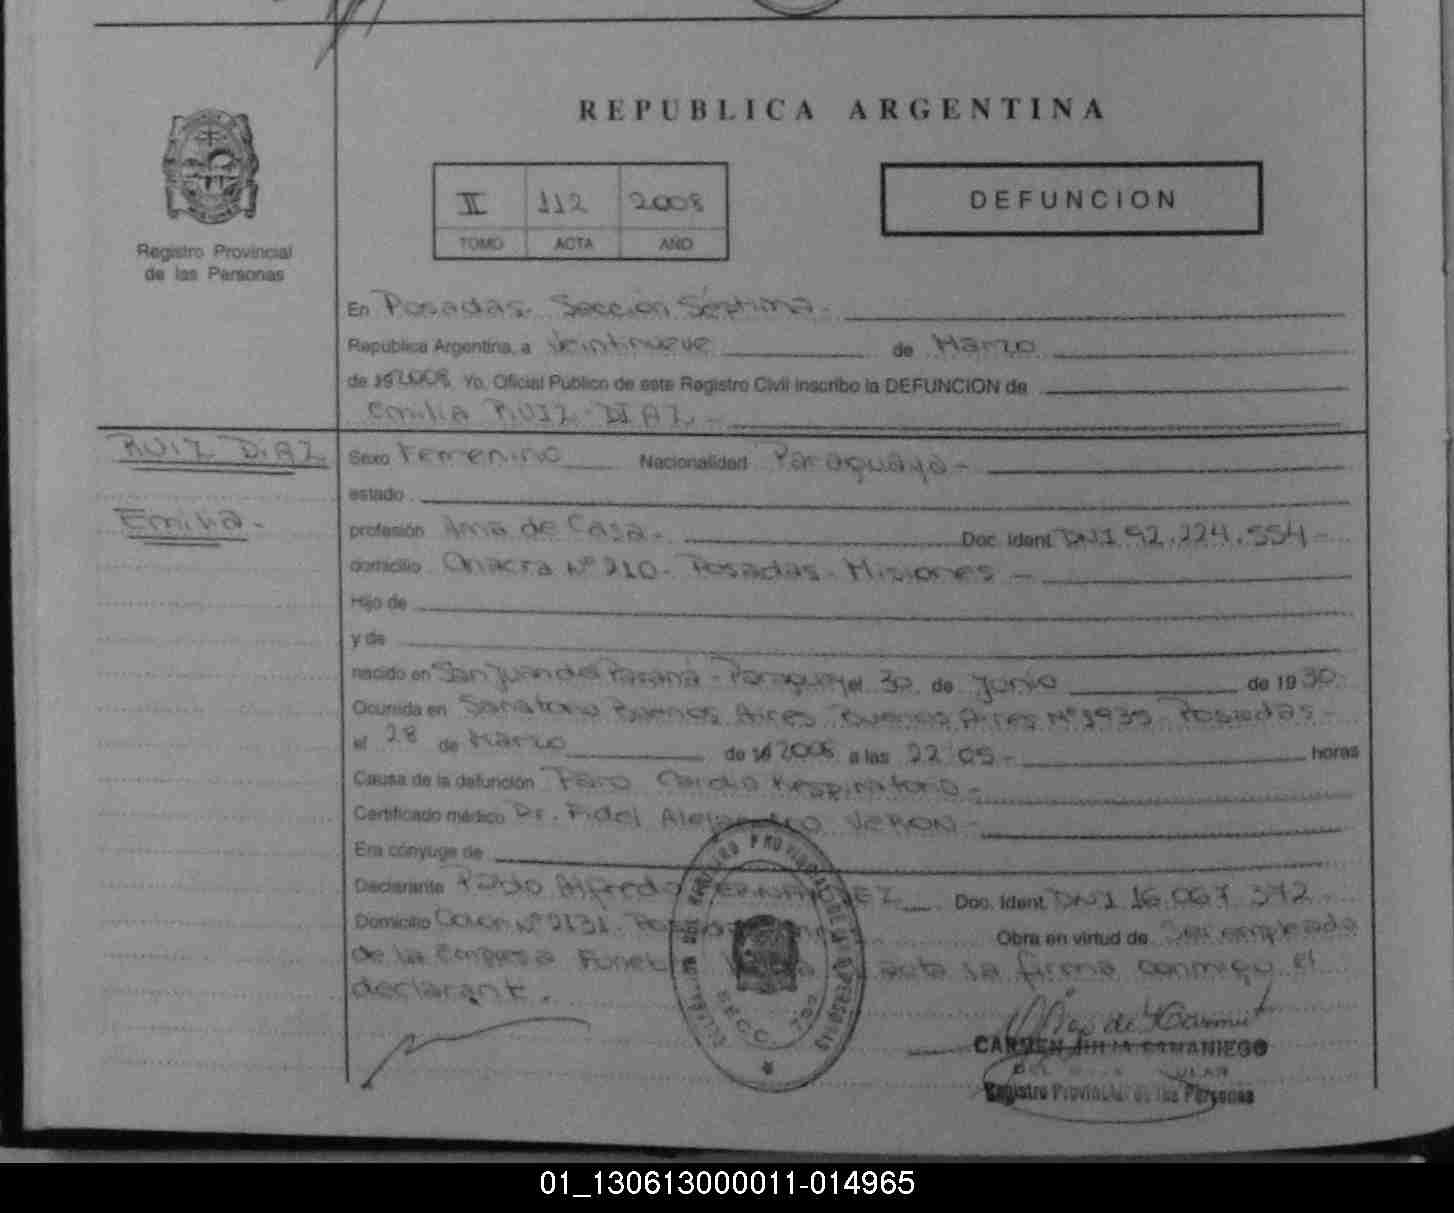 REPUBLICA ARGENTINA
II 112 2008
TOMO ACTA AÑO
DEFUNCION
Registro Provincial
de las Personas
En Posadas. Sección Séptima.
República Argentina, a Veintinueve de Marzo
de 19 2008 Yo, Oficial Público de este Registro Civil inscribo la DEFUNCION de
Emilia RUIZ DIAZ -
RUIZ DIAZ
Emilia -
Sexo Femenino Nacionalidad Paraguaya -
estado
profesión Ama de Casa - Doc. Ident. DNI 92.224.554 -
domicilio Chacra Nº 210 - Posadas - Misiones -
Hijo de
y de
nacido en San Juan del Paraná - Paraguay el 30 de Junio de 1930 -
Ocurrida en Sanatorio Buenos Aires. Buenos Aires Nº 1935 - Posadas -
el 28 de Marzo de 19 2008 a las 22:05 - horas
Causa de la defunción Paro Cardio Respiratorio -
Certificado médico Dr. Fidel Alejandro VERON -
Era cónyuge de
Declarante Alfredo Doc. Ident. DNI 16.067.372 -
Domicilio Nº 2131 - Obra en virtud de Ser empleado
de la Empresa acta la firma conmigo el
declarante.
SECC. 7ma
CARMEN JULIA SAMANIEGO
Registro Provincial de las Personas
01_130613000011-014965